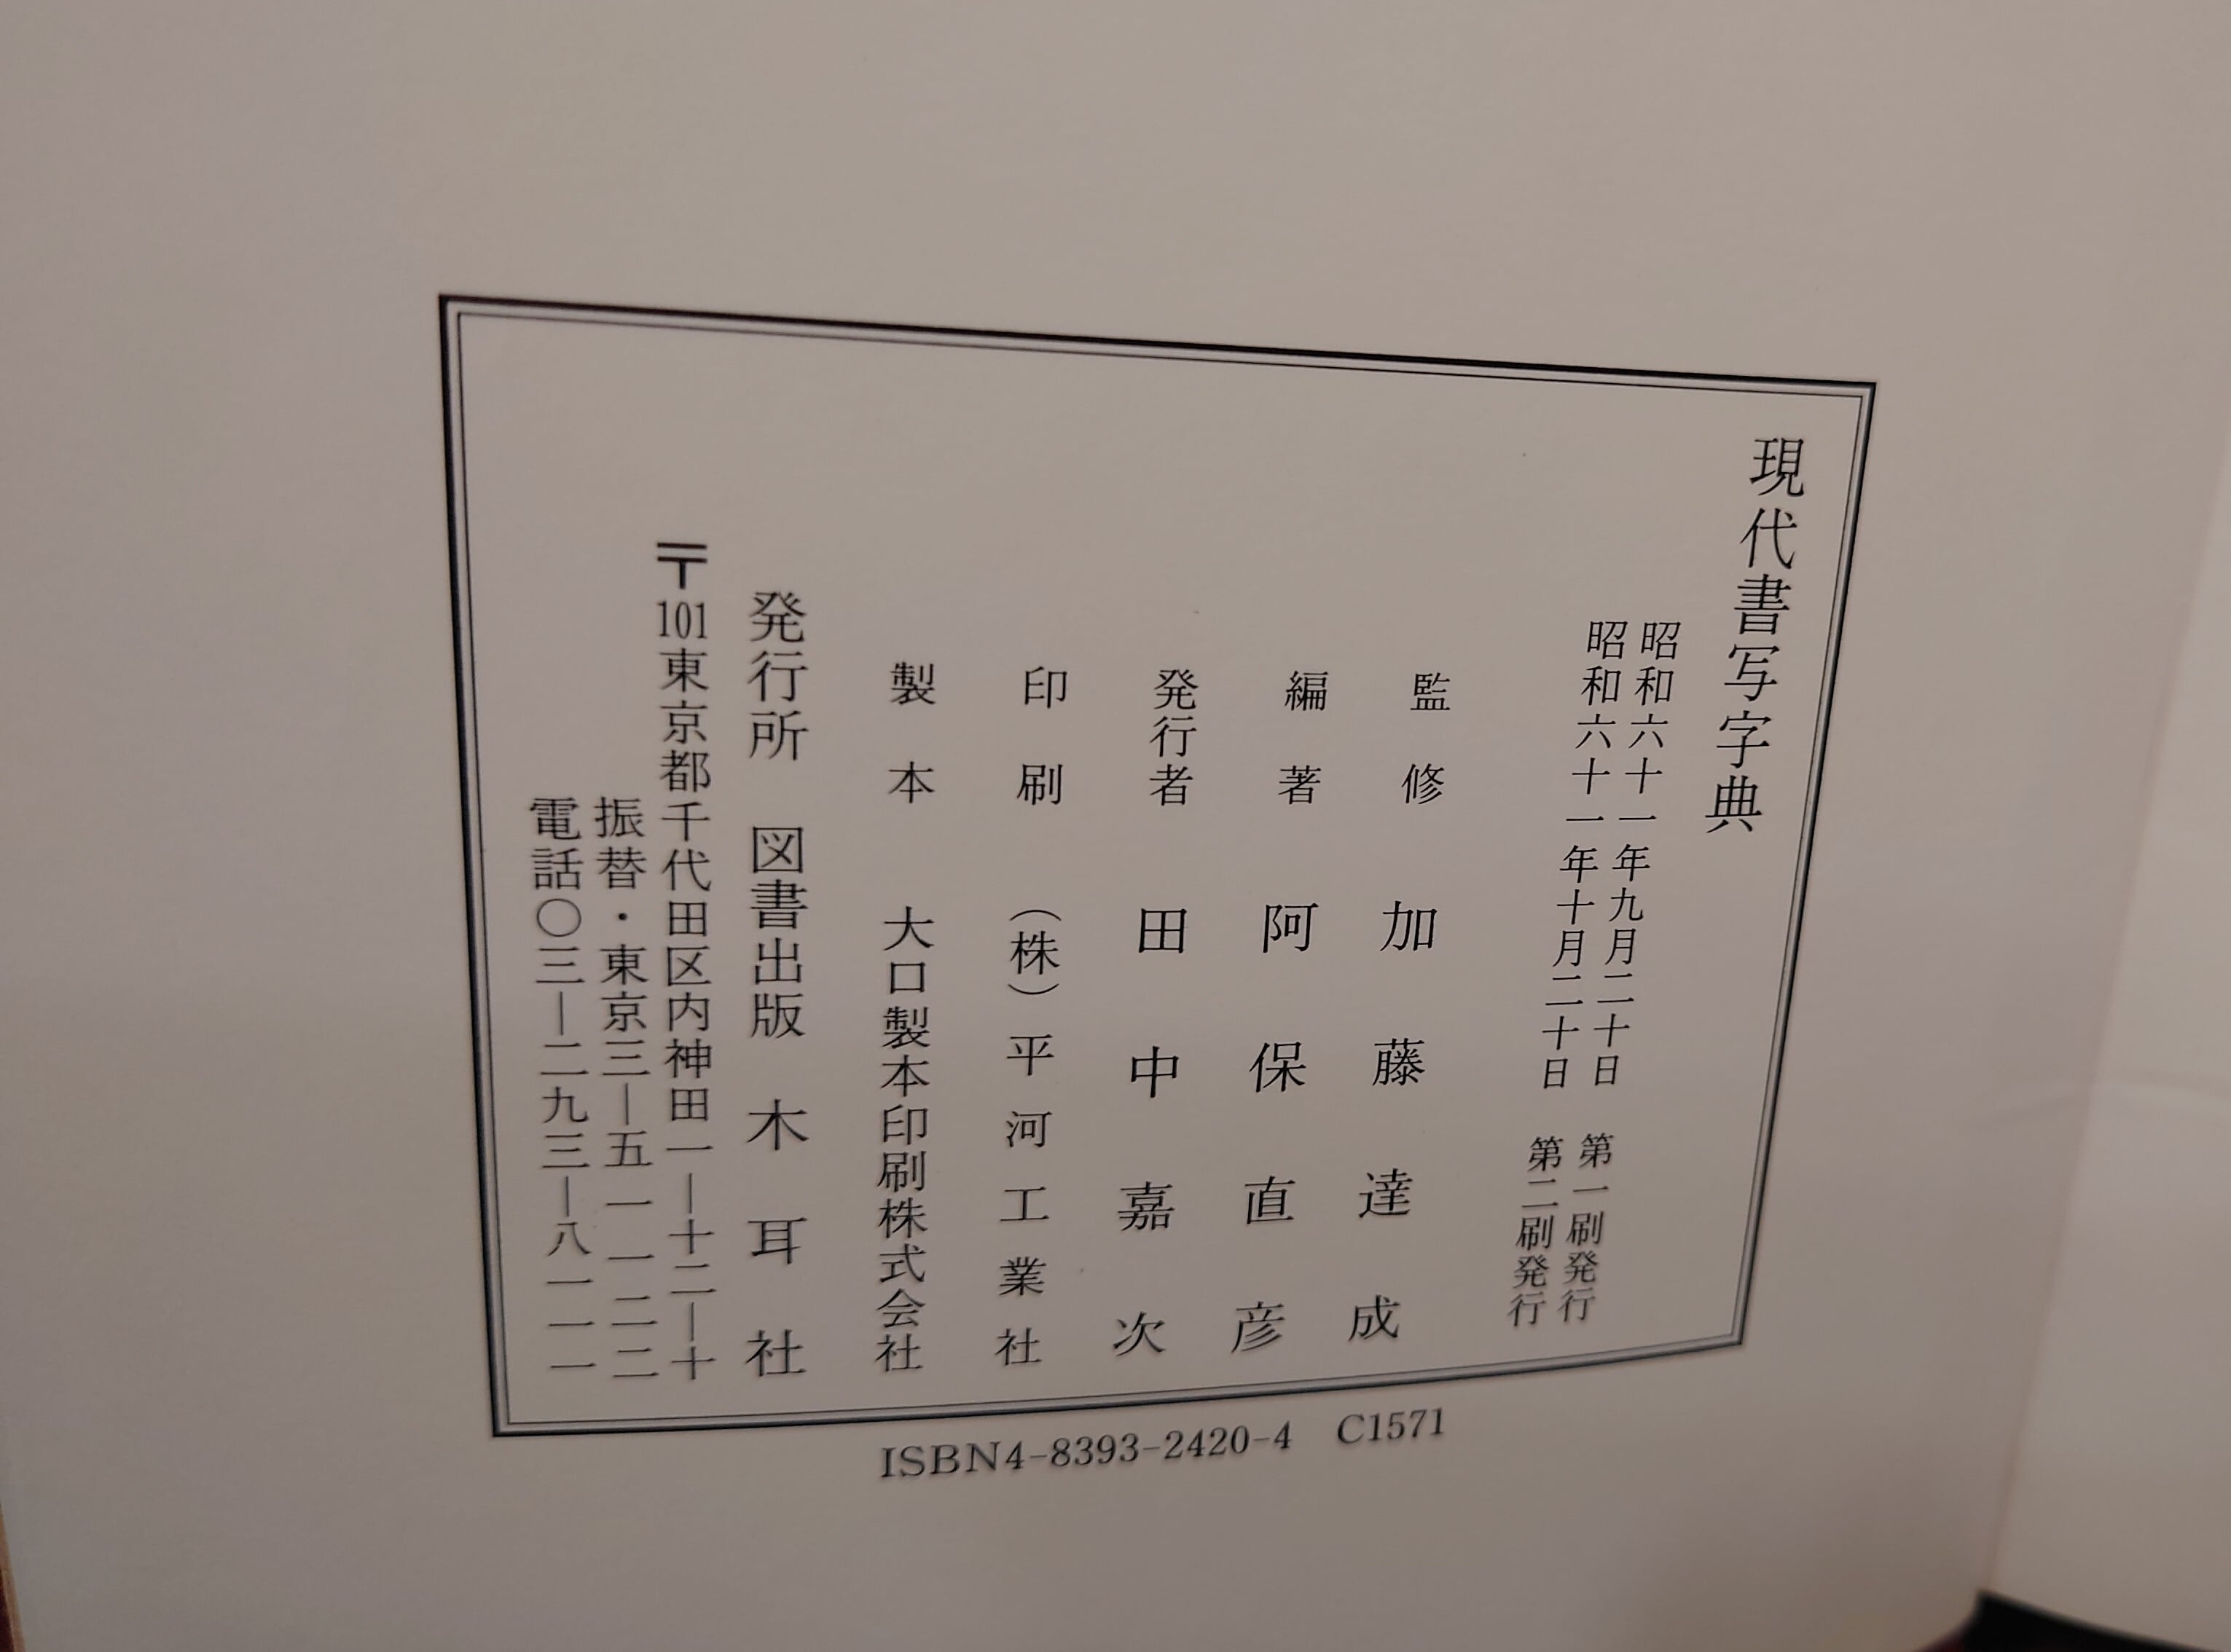 現代書写字典
昭和六十一年九月二十日 第一刷発行
昭和六十一年十月二十日 第二刷発行
監修 加藤達成
編著 阿保直彦
発行者 田中嘉次
印刷 (株)平河工業社
製本 大口製本印刷株式会社
発行所 図書出版 木耳社
〒101東京都千代田区内神田一―十二―十
振替・東京三―五一一二二
電話〇三―二九三―八一一一
ISBN4-8393-2420-4 C1571